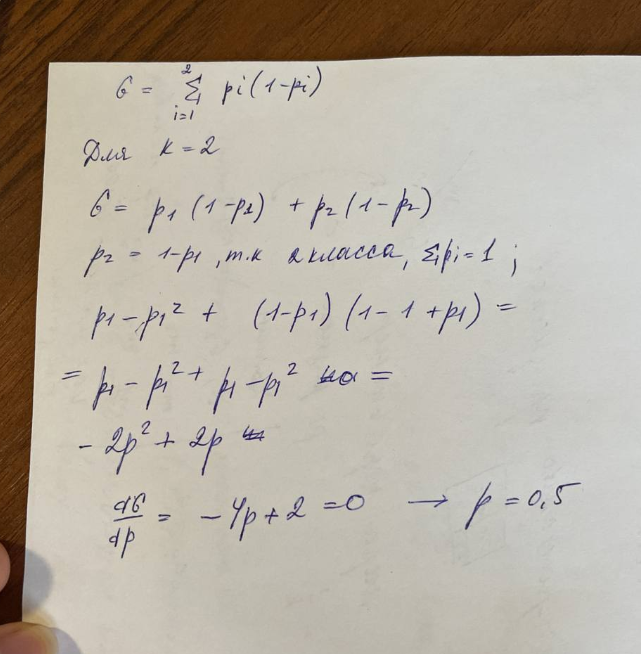 G = Σ_{i=1}^{2} pi(1-pi)
Для K=2
G = p1 (1-p1) + p2 (1-p2)
p2 = 1-p1, т.к 2 класса, Σpi = 1 ;
p1 - p1² + (1-p1) (1-1+p1) =
= p1 - p1² + p1 - p1² =
- 2p² + 2p
dG/dp = -4p+2 =0 → p = 0,5